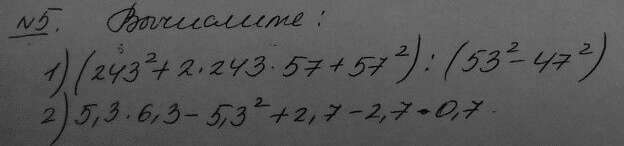 №5. Вычислите:
1) (243² + 2·243·57 + 57²) : (53² - 47²)
2) 5,3·6,3 - 5,3² + 2,7 - 2,7·0,7.